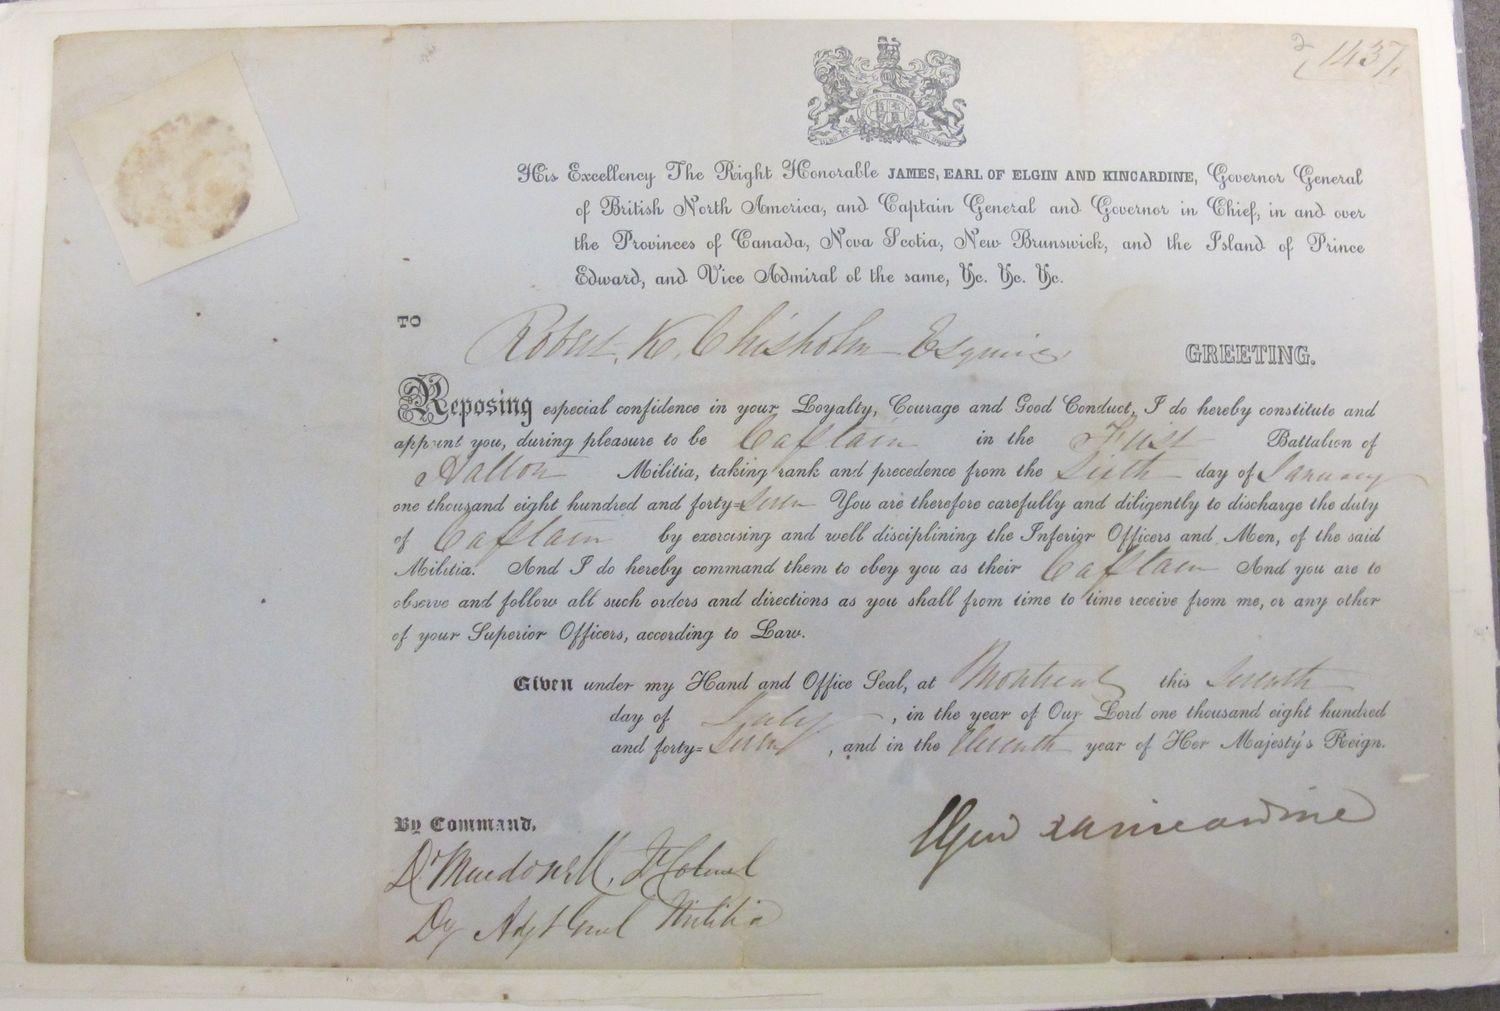 1437
His Excellency The Right Honorable JAMES, EARL OF ELGIN AND KINCARDINE, Governor General
of British North America, and Captain General and Governor in Chief, in and over
the Provinces of Canada, Nova Scotia, New Brunswick, and the Island of Prince
Edward, and Vice Admiral of the same, &c. &c. &c.
TO Robert K. Chisholm Esquire GREETING.
Reposing especial confidence in your Loyalty, Courage and Good Conduct, I do hereby constitute and
appoint you, during pleasure to be Captain in the First Battalion of
Halton Militia, taking rank and precedence from the Sixth day of January
one thousand eight hundred and forty=seven You are therefore carefully and diligently to discharge the duty
of Captain by exercising and well disciplining the Inferior Officers and Men, of the said
Militia. And I do hereby command them to obey you as their Captain And you are to
observe and follow all such orders and directions as you shall from time to time receive from me, or any other
of your Superior Officers, according to Law.
Given under my Hand and Office Seal, at Montreal this Seventh
day of July, in the year of Our Lord one thousand eight hundred
and forty=Seven, and in the Eleventh year of Her Majesty's Reign.
Elgin & Kincardine
By Command,
D. Macdonell, Lt Colonel
Dy Adjt Genl Militia